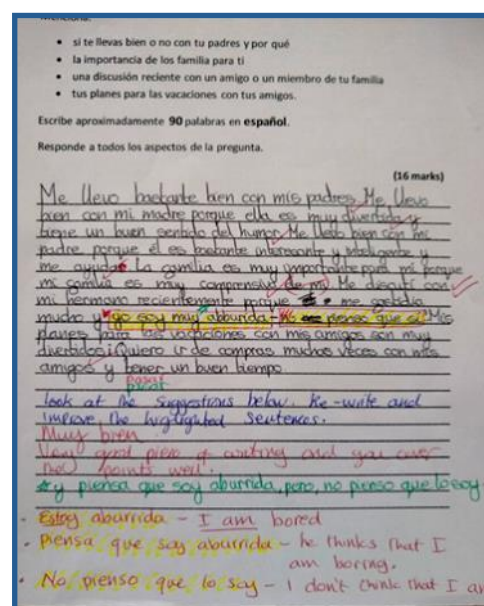 • si te llevas bien o no con tu padres y por qué
• la importancia de los familia para ti
• una discusión reciente con un amigo o un miembro de tu familia
• tus planes para las vacaciones con tus amigos.
Escribe aproximadamente 90 palabras en español.
Responde a todos los aspectos de la pregunta.
(16 marks)
Me llevo bastante bien con mis padres. Me llevo
bien con mi madre porque ella es muy divertida y
tiene un buen sentido del humor. Me llevo bien con mi
padre porque el es bastante interesante y inteligente y
me ayuda. La familia es muy importante para mi porque
mi familia es muy comprensiva de mi. Me discutí con
mi hermano recientemente porque me fastidia
mucho y yo soy muy aburrida - no pienso que el. Mis
planes para las vacaciones con mis amigos son muy
divertidos. Quiero ir de compras muchas veces con mis
amigos y tener un buen tiempo.
pasar
look at the suggestions below. Re-write and
improve the highlighted sentences.
Muy bien
Very good piece of writing and you cover
the points well.
* y piensa que soy aburrida, pero, no pienso que lo soy
• Estoy aburrida - I am bored
• Piensa que soy aburrida - he thinks that I
am boring.
• No pienso que lo soy - I don't think that I am